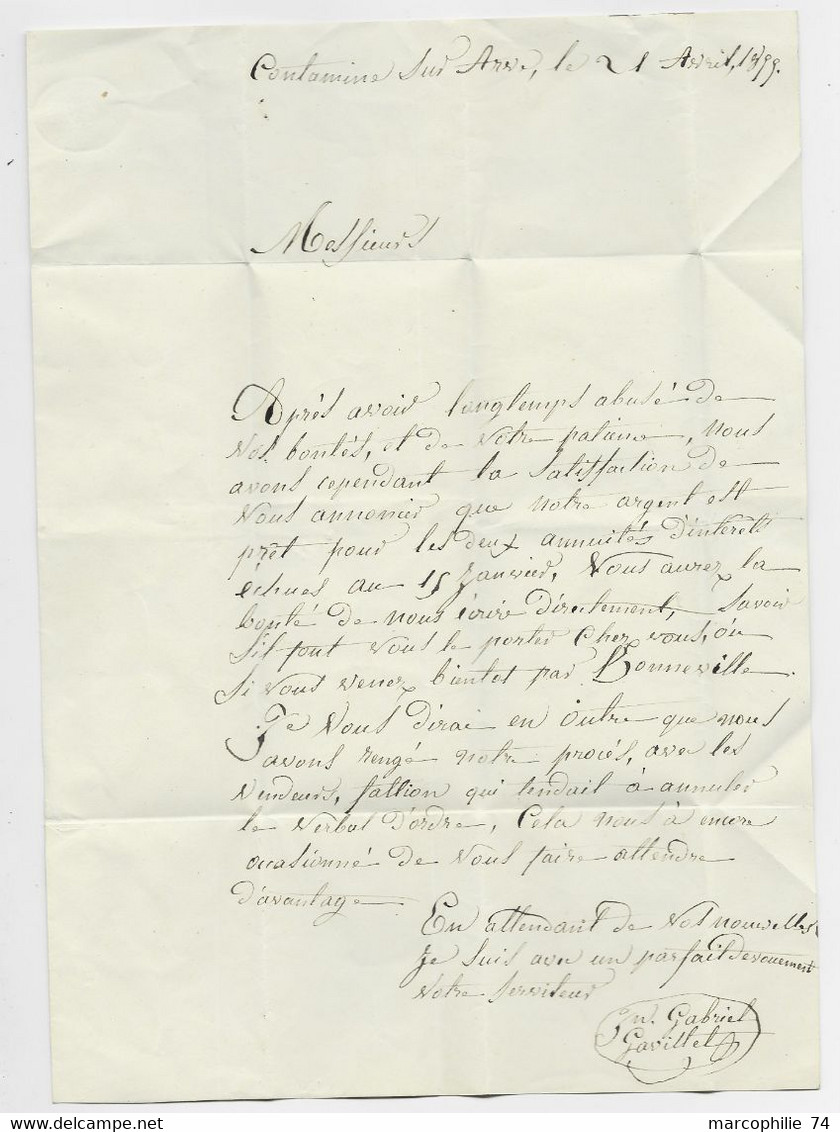 Contamine sur Arve, le 21 Avril, 1899.
Messieurs
Après avoir longtemps abusé de
vos bontés, et de votre patiance, nous
avons cependant la satisfaction de
vous annoncer que notre argent est
prêt pour les deux annuités d'interêt
échues au 15 Janvier, Vous aurez la
bonté de nous écrire directement, savoir
s'il faut vous le porter chez vous, ou
si vous venez bientot par Bonneville.
Je vous dirai en outre que nous
avons rengé notre procés, avec les
vendeurs, fallion qui tendait à annuler
le verbal d'ordre, Cela nous à encore
ocasionné de vous faire attendre
d'avantage
En attendant de vos nouvelles
Je suis avec un parfait devouement
votre serviteur
Jn. Gabriel
Gavillet
marcophilie 74